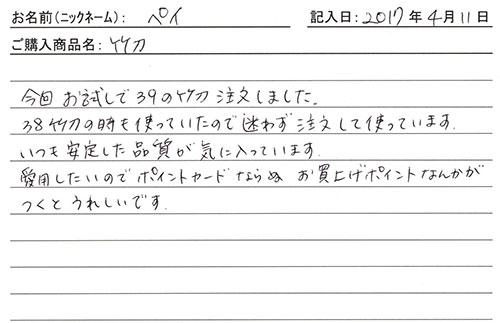 お名前(ニックネーム): ペイ 記入日: 2017年4月11日
ご購入商品名: 竹刀
今回 お試しで39の竹刀 注文しました。
38竹刀の時も使っていたので迷わず注文して使っています。
いつも安定した品質が気に入っています。
愛用したいのでポイントカードならぬ お買上げポイントなんかが
つくと うれしいです。